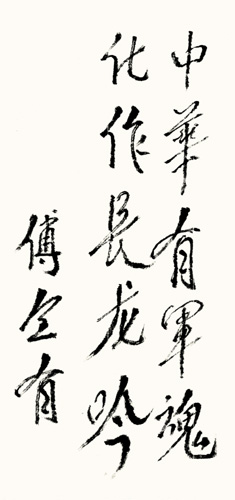 中華有军魂
化作長龙吟
傅全有